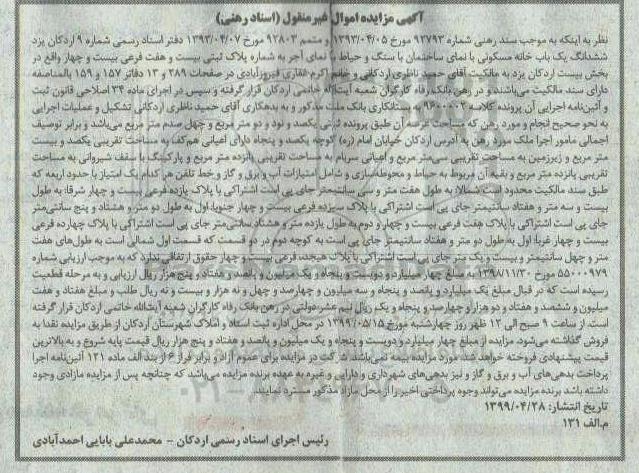 آگهی مزایده اموال غیرمنقول (اسناد رهنی)
نظر به اینکه به موجب سند رهنی شماره ۹۲۷۹۳ مورخ ۱۳۹۳/۰۴/۰۵ و متمم ۹۲۸۰۳ مورخ ۱۳۹۳/۰۴/۰۷ دفتر اسناد رسمی شماره ۹ اردکان یزد
ششدانگ یک باب خانه مسکونی با نمای ساختمان با سنگ و حیاط با نمای آجر به شماره پلاک ثبتی بیست و هفت فرعی بیست و چهار واقع در
بخش بیست اردکان یزد به مالکیت آقای حمید ناظری اردکانی و خانم اکرم غفاری فیروزآبادی در صفحات ۲۸۹ و ۱۳ دفاتر ۱۵۷ و ۱۵۹ بالمناصفه
دارای سند مالکیت می‌باشند و در رهن بانک رفاه کارگران شعبه آیت‌اله خاتمی اردکان قرار گرفته و سپس در اجرای ماده ۳۴ اصلاحی قانون ثبت
و آئین‌نامه اجرایی آن پرونده کلاسه ۹۶۰۰۰۰۳ بستانکاری بانک ملت مذکور و به بدهکاری آقای حمید ناظری اردکانی تشکیل و عملیات اجرایی
به نحو صحیح انجام و مورد رهن که مساحت عرصه آن طبق پرونده ثبتی یکصد و نود و دو متر مربع و چهل صدم متر مربع می‌باشد و برابر توصیف
اجمالی مامور اجرا ملک مورد رهن به آدرس اردکان خیابان امام (ره) کوچه یکصد و پنجاه دارای اعیانی هم‌کف به مساحت تقریبی یکصد و بیست
متر مربع و زیرزمین به مساحت تقریبی سی‌متر مربع و اعیانی سرپام به مساحت تقریبی پانزده متر مربع و پارکینگ با سقف شیروانی به مساحت
تقریبی پانزده متر مربع و بقیه آن مربوط به حیاط و محوطه‌سازی و شامل امتیازات آب و برق و گاز و خط تلفن هر کدام یک امتیاز با حدود اربعه که
طبق سند مالکیت محدود است شمالا: به طول هفت متر و سی سانتیمتر جای پی است اشتراکی با پلاک یازده فرعی بیست و چهار شرقا: به طول
بیست و سه متر و هفتاد سانتیمتر جای پی است اشتراکی با پلاک سیزده فرعی بیست و چهار جنوبا: اول به طول دو متر و هشتاد و پنج سانتی‌متر
جای پی است اشتراکی با پلاک هفت فرعی بیست و چهار و دوم به طول یازده متر و هشتاد سانتی‌متر جای پی است اشتراکی با پلاک چهارده فرعی
بیست و چهار غربا: اول به طول دو متر و هفتاد سانتیمتر جای پی است به کوچه دوم در دو قسمت که قسمت اول شمالی است به طول‌های هفت
متر و چهل سانتیمتر و بیست و یک متر جای پی است اشتراکی با پلاک هیجده فرعی بیست و چهار حقوق ارتفاقی ندارد که به موجب ارزیابی شماره
۵۵۰۰۰۹۷۹ مورخ ۱۳۹۸/۱۱/۳۰ به مبلغ چهار میلیارد و دویست و پنجاه و یک میلیون و پانصد و هفتاد و پنج‌هزار ریال ارزیابی و به مرحله قطعیت
رسیده است که در قبال مبلغ یک میلیارد و پانصد و پنجاه و سه میلیون و چهارصد و چهل و نه هزار و بیست و نه ریال طلب و مبلغ هفتاد و هفت
میلیون و ششصد و هفتاد و دو هزار و چهارصد و پنجاه و یک ریال نیم عشر دولتی در رهن بانک رفاه کارگران شعبه آیت‌الله خاتمی اردکان قرار گرفته
است. از ساعت ۹ صبح الی ۱۲ ظهر روز چهارشنبه مورخ ۱۳۹۹/۰۵/۱۵ در محل اداره ثبت اسناد و املاک شهرستان اردکان از طریق مزایده نقدا به
فروش گذاشته می‌شود. مزایده از مبلغ چهار میلیارد و دویست و پنجاه و یک میلیون و پانصد و هفتاد و پنج هزار ریال قیمت پایه شروع و به بالاترین
قیمت پیشنهادی فروخته خواهد شد. مورد مزایده بیمه نمی‌باشد. شرکت در مزایده برای عموم آزاد و برابر فراز ۶ از بند الف ماده ۱۲۱ آئین‌نامه اجرا
پرداخت بدهی‌های آب و برق و گاز و نیز بدهی‌های شهرداری و دارایی و غیره به عهده برنده مزایده می‌باشد که چنانچه پس از مزایده مازادی وجود
داشته باشد برنده مزایده می‌تواند وجوه پرداختی اخیر را از محل مازاد مذکور مسترد نمایند.
تاریخ انتشار: ۱۳۹۹/۰۴/۲۸
م.الف ۱۳۱
رئیس اجرای اسناد رسمی اردکان – محمدعلی بابایی احمدآبادی